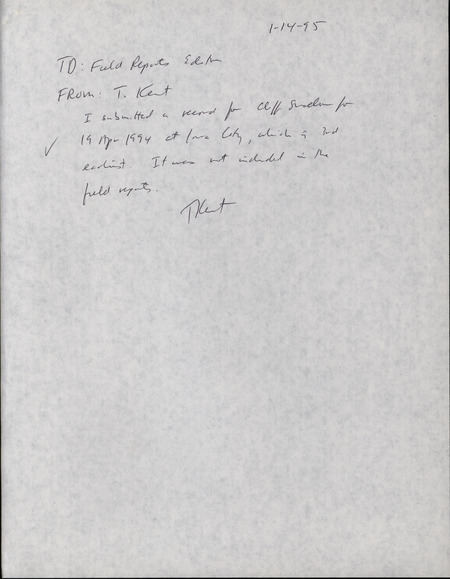 1-14-95
TO: Field Reports Editor
FROM: T. Kent
I submitted a record for Cliff Swallow for
✓ 19 Apr 1994 at Iowa City, which is 2nd
earliest. It was not included in the
field reports.
TKent